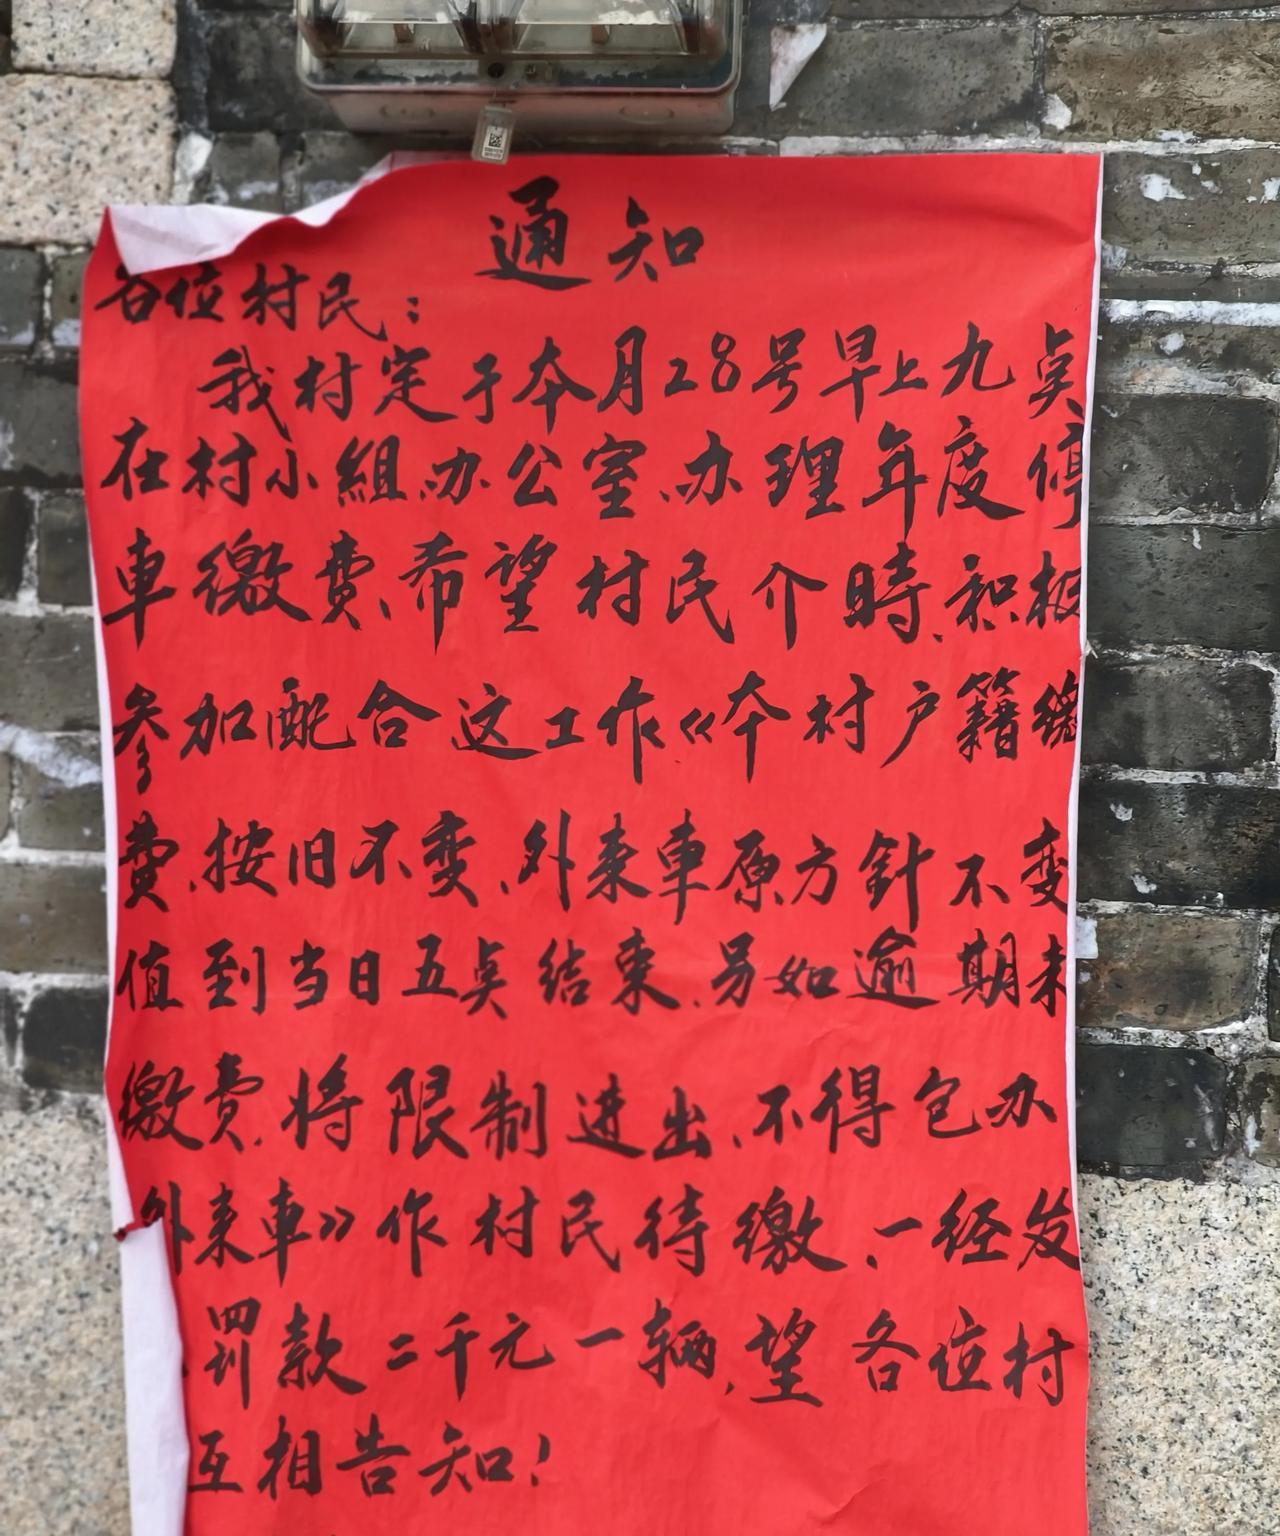 通知
各位村民：
我村定于本月28号早上九点
在村小組办公室、办理年度停
車缴費、希望村民介時、积极
参加配合这工作《本村户籍缴
費、按旧不变、外来車原方針不变
值到当日五点结束、另如逾期未
缴費、将限制进出、不得包办
外来車》作村民待缴、一经发
罰款二千元一辆、望各位村
互相告知！